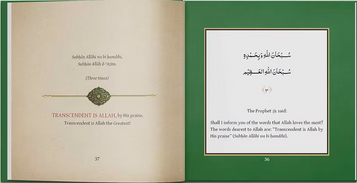 Subḥān Allāhi wa bi ḥamdihi,
Subḥān Allāh il-ʿAẓīm
(Three times)
TRANSCENDENT IS ALLAH, by His praise,
Transcendent is Allah the Greatest!
37
سُبْحَانَ اللَّهِ وَبِحَمْدِهِ
سُبْحَانَ اللَّهِ الْعَظِيمِ
(٣)
The Prophet ﷺ said:
Shall I inform you of the words that Allah loves the most?
The words dearest to Allah are: "Transcendent is Allah by
His praise" (Subḥān Allāhi wa bi ḥamdihi).
36